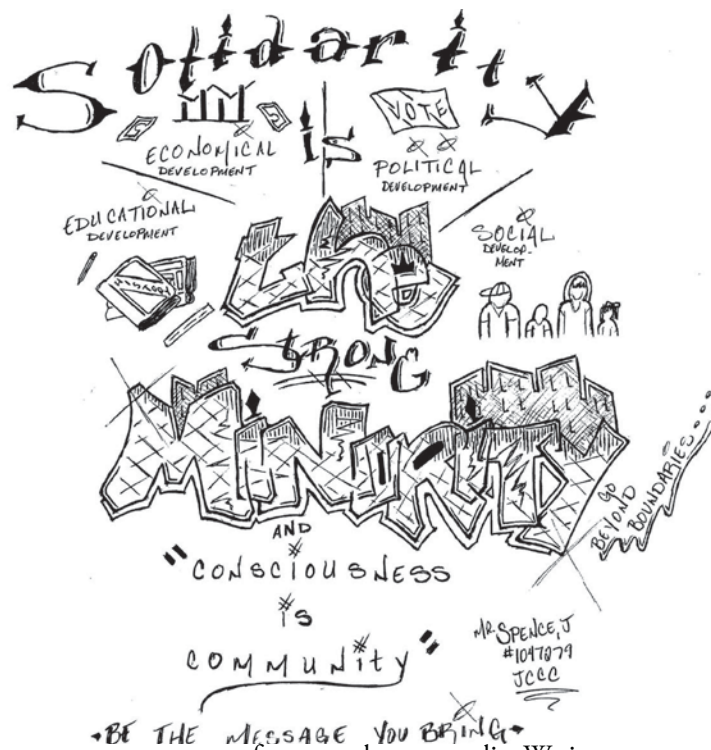 Solidarity
is
ECONOMICAL
DEVELOPMENT
VOTE
POLITICAL
DEVELOPMENT
EDUCATIONAL
DEVELOPMENT
SOCIAL
DEVELOP-
MENT
the
STRONG
MINORITY
GO
BEYOND
BOUNDARIES...
AND
"CONSCIOUSNESS
is
COMMUNITY"
MR. SPENCE, J
#1097279
JCCC
BE THE MESSAGE YOU BRING